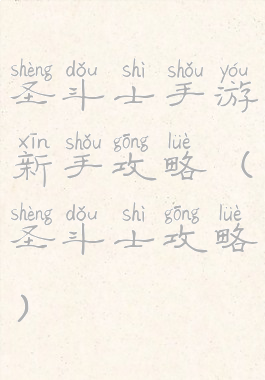 shèng dǒu shì shǒu yóu
圣斗士手游
xīn shǒu gōng lüè
新手攻略（
shèng dǒu shì gōng lüè
圣斗士攻略
）